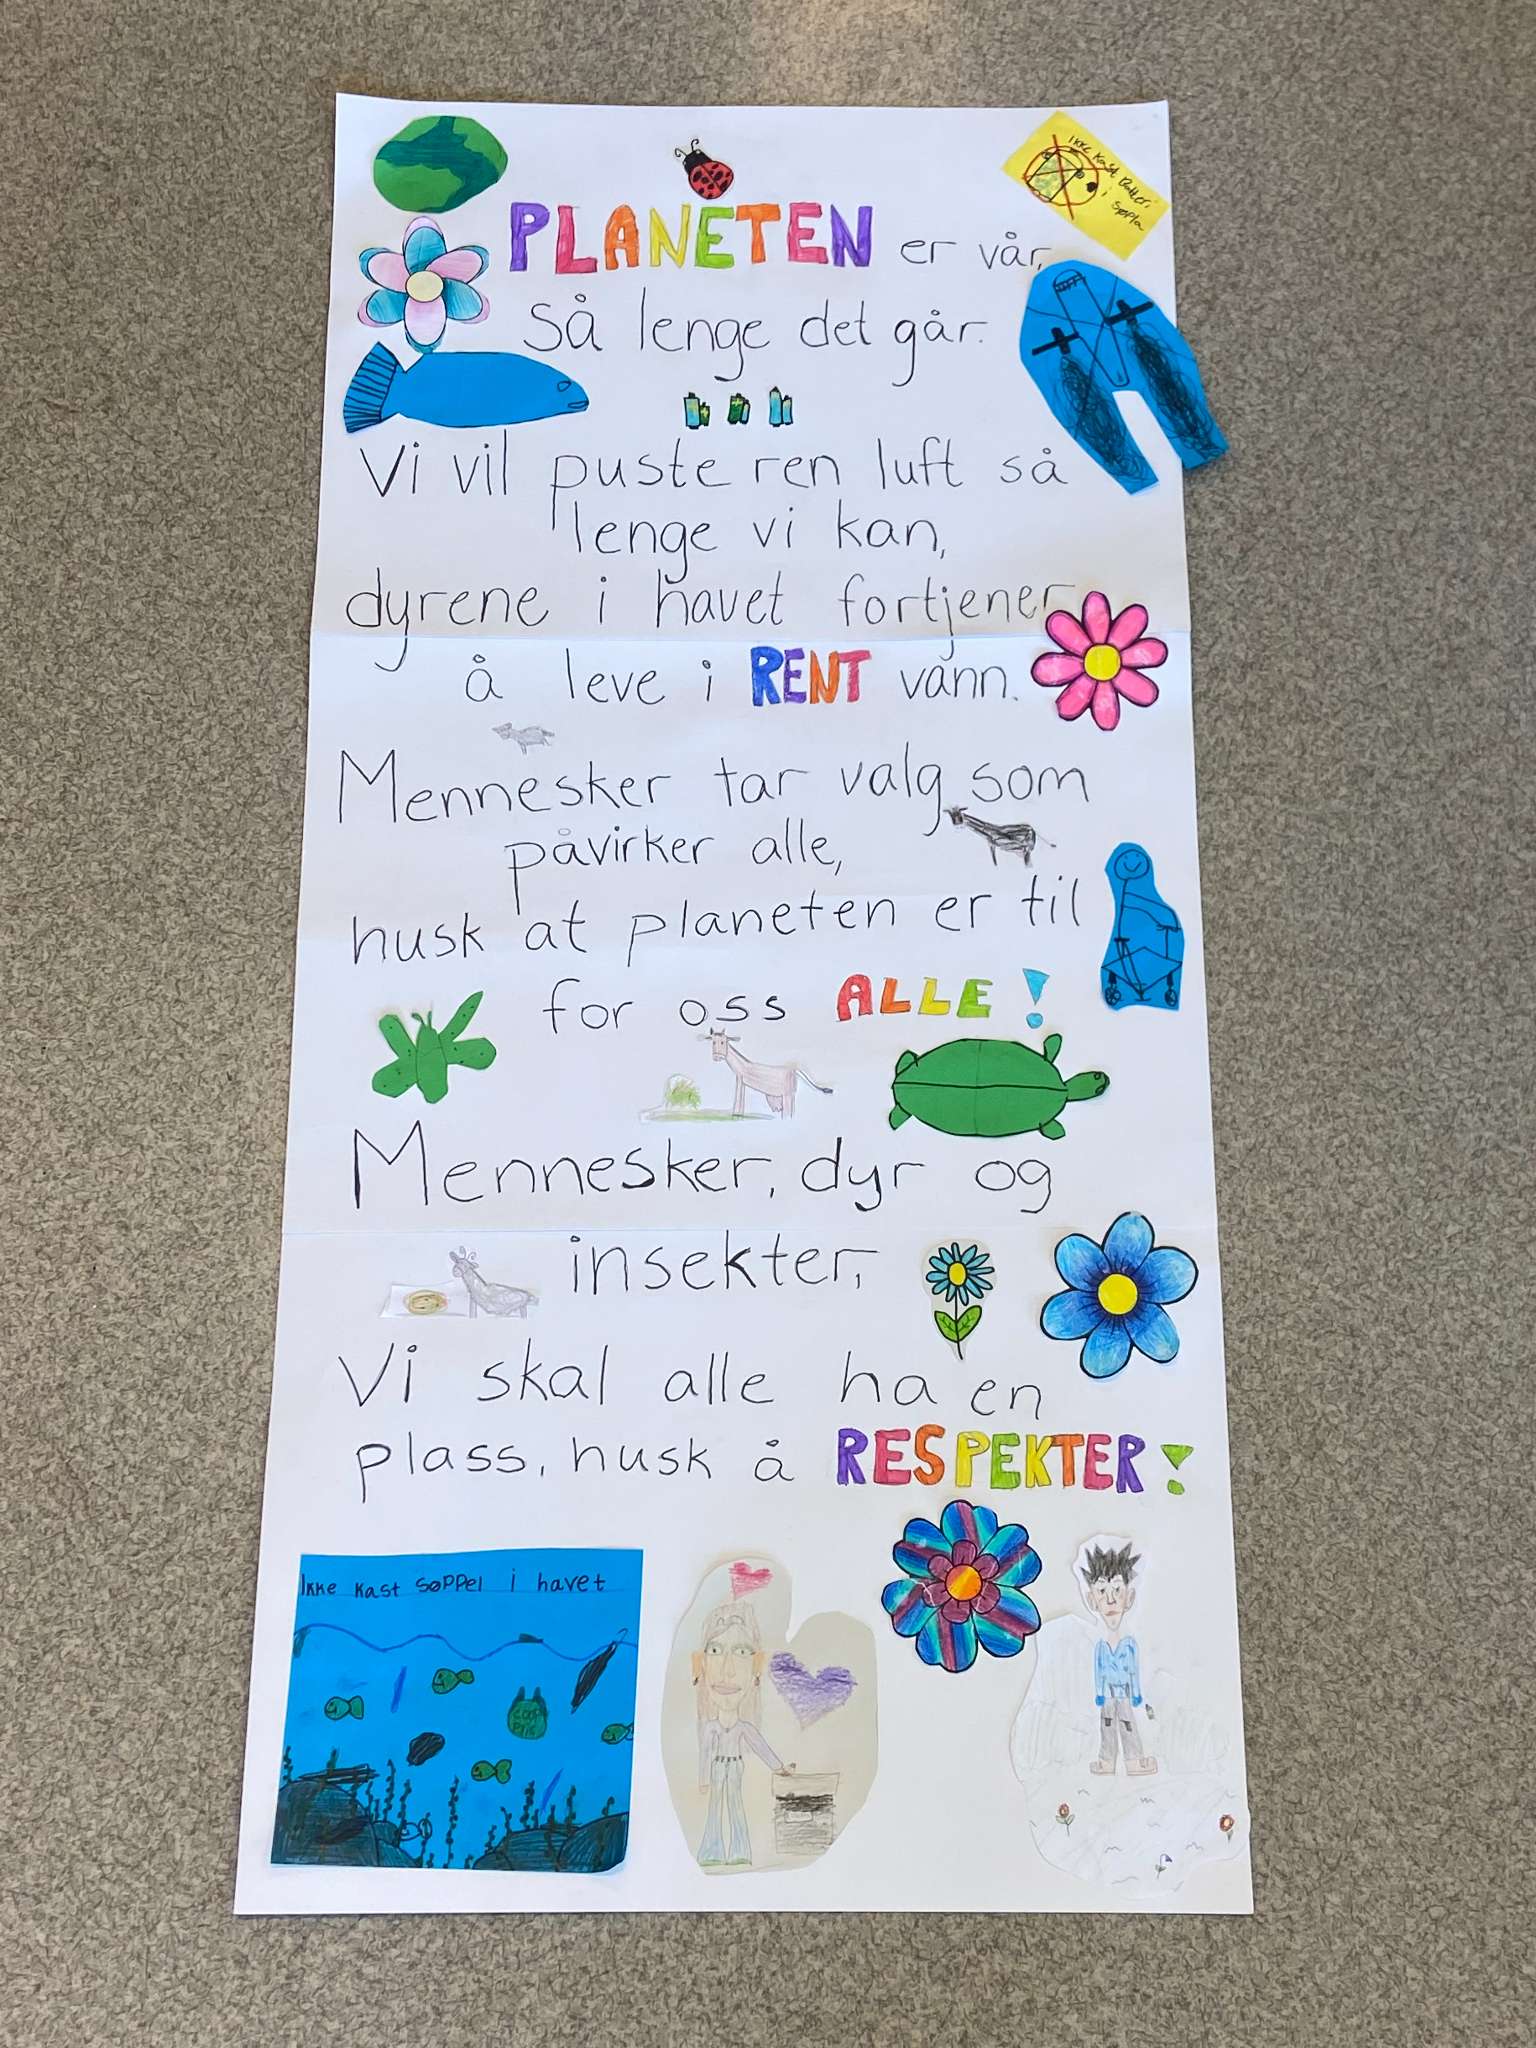 Ikke kast Batteri
i søpla
PLANETEN er vår,
Så lenge det går.
Vi vil puste ren luft så
lenge vi kan,
dyrene i havet fortjener
å leve i RENT vann.
Mennesker tar valg som
påvirker alle,
husk at planeten er til
for oss ALLE!
Mennesker, dyr og
insekter,
Vi skal alle ha en
plass, husk å RESPEKTER!
Ikke kast søppel i havet